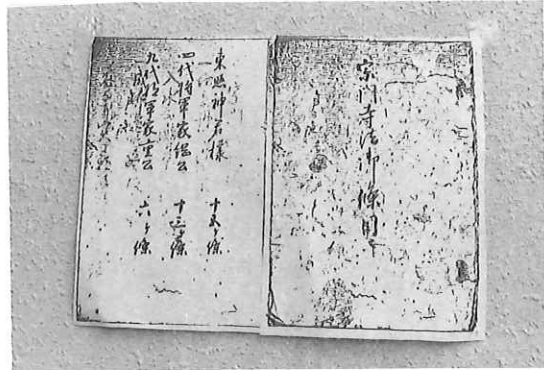 宗門寺法御條目
東照神君様 十五ヶ條
四代将軍家綱公 十三ヶ條
九代将軍家重公 六ヶ條